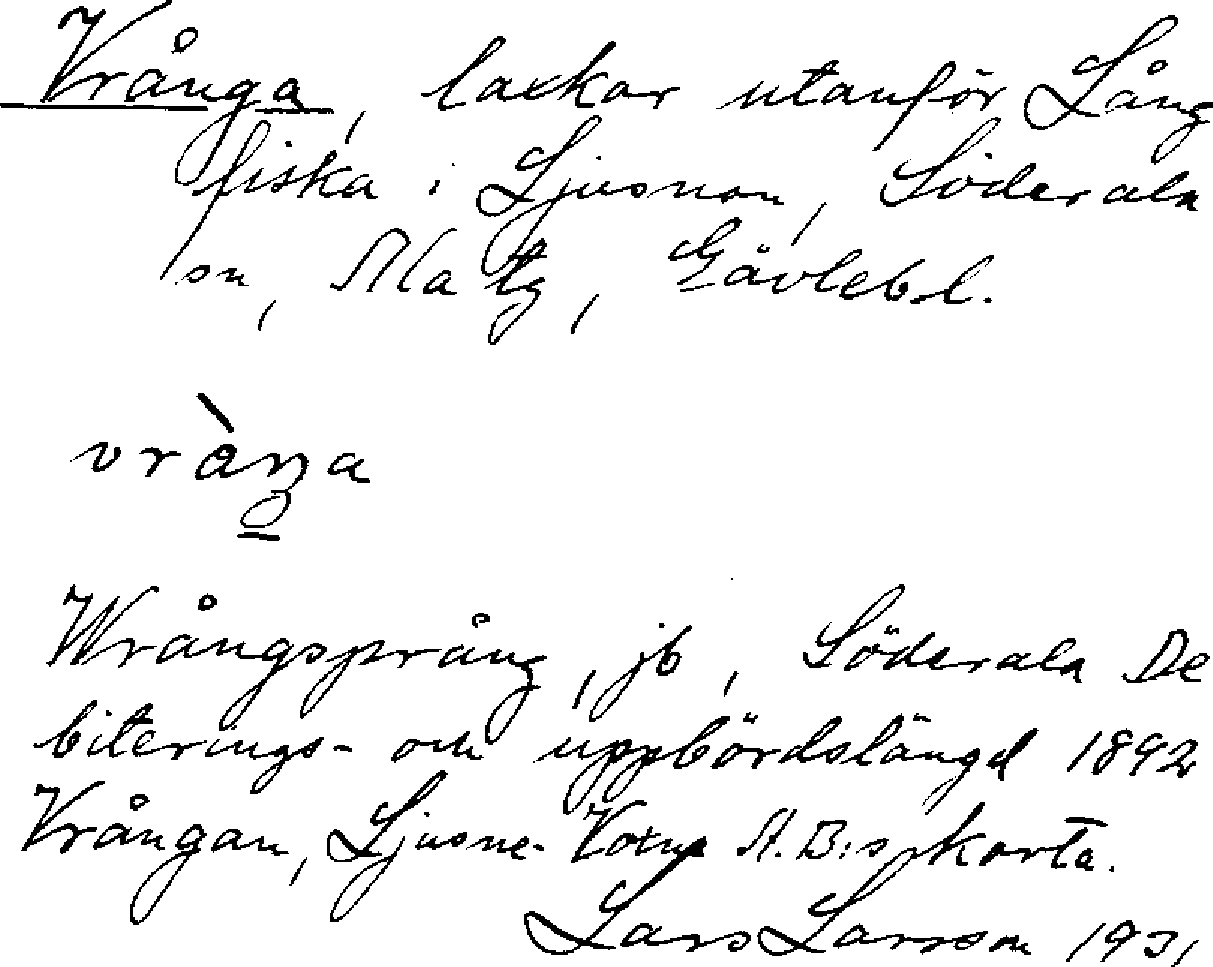 Vrånga, laxkar utanför Lång
fiska i Ljusnan, Söderala
sn, Ala tg, Gävlebl.
vràŋa
Wrångsprång, jb, Söderala De
biterings- och uppbördslängd 1892
Vrångan, Ljusne-Voxna A.B:s karta.
Lars Larsson 1931